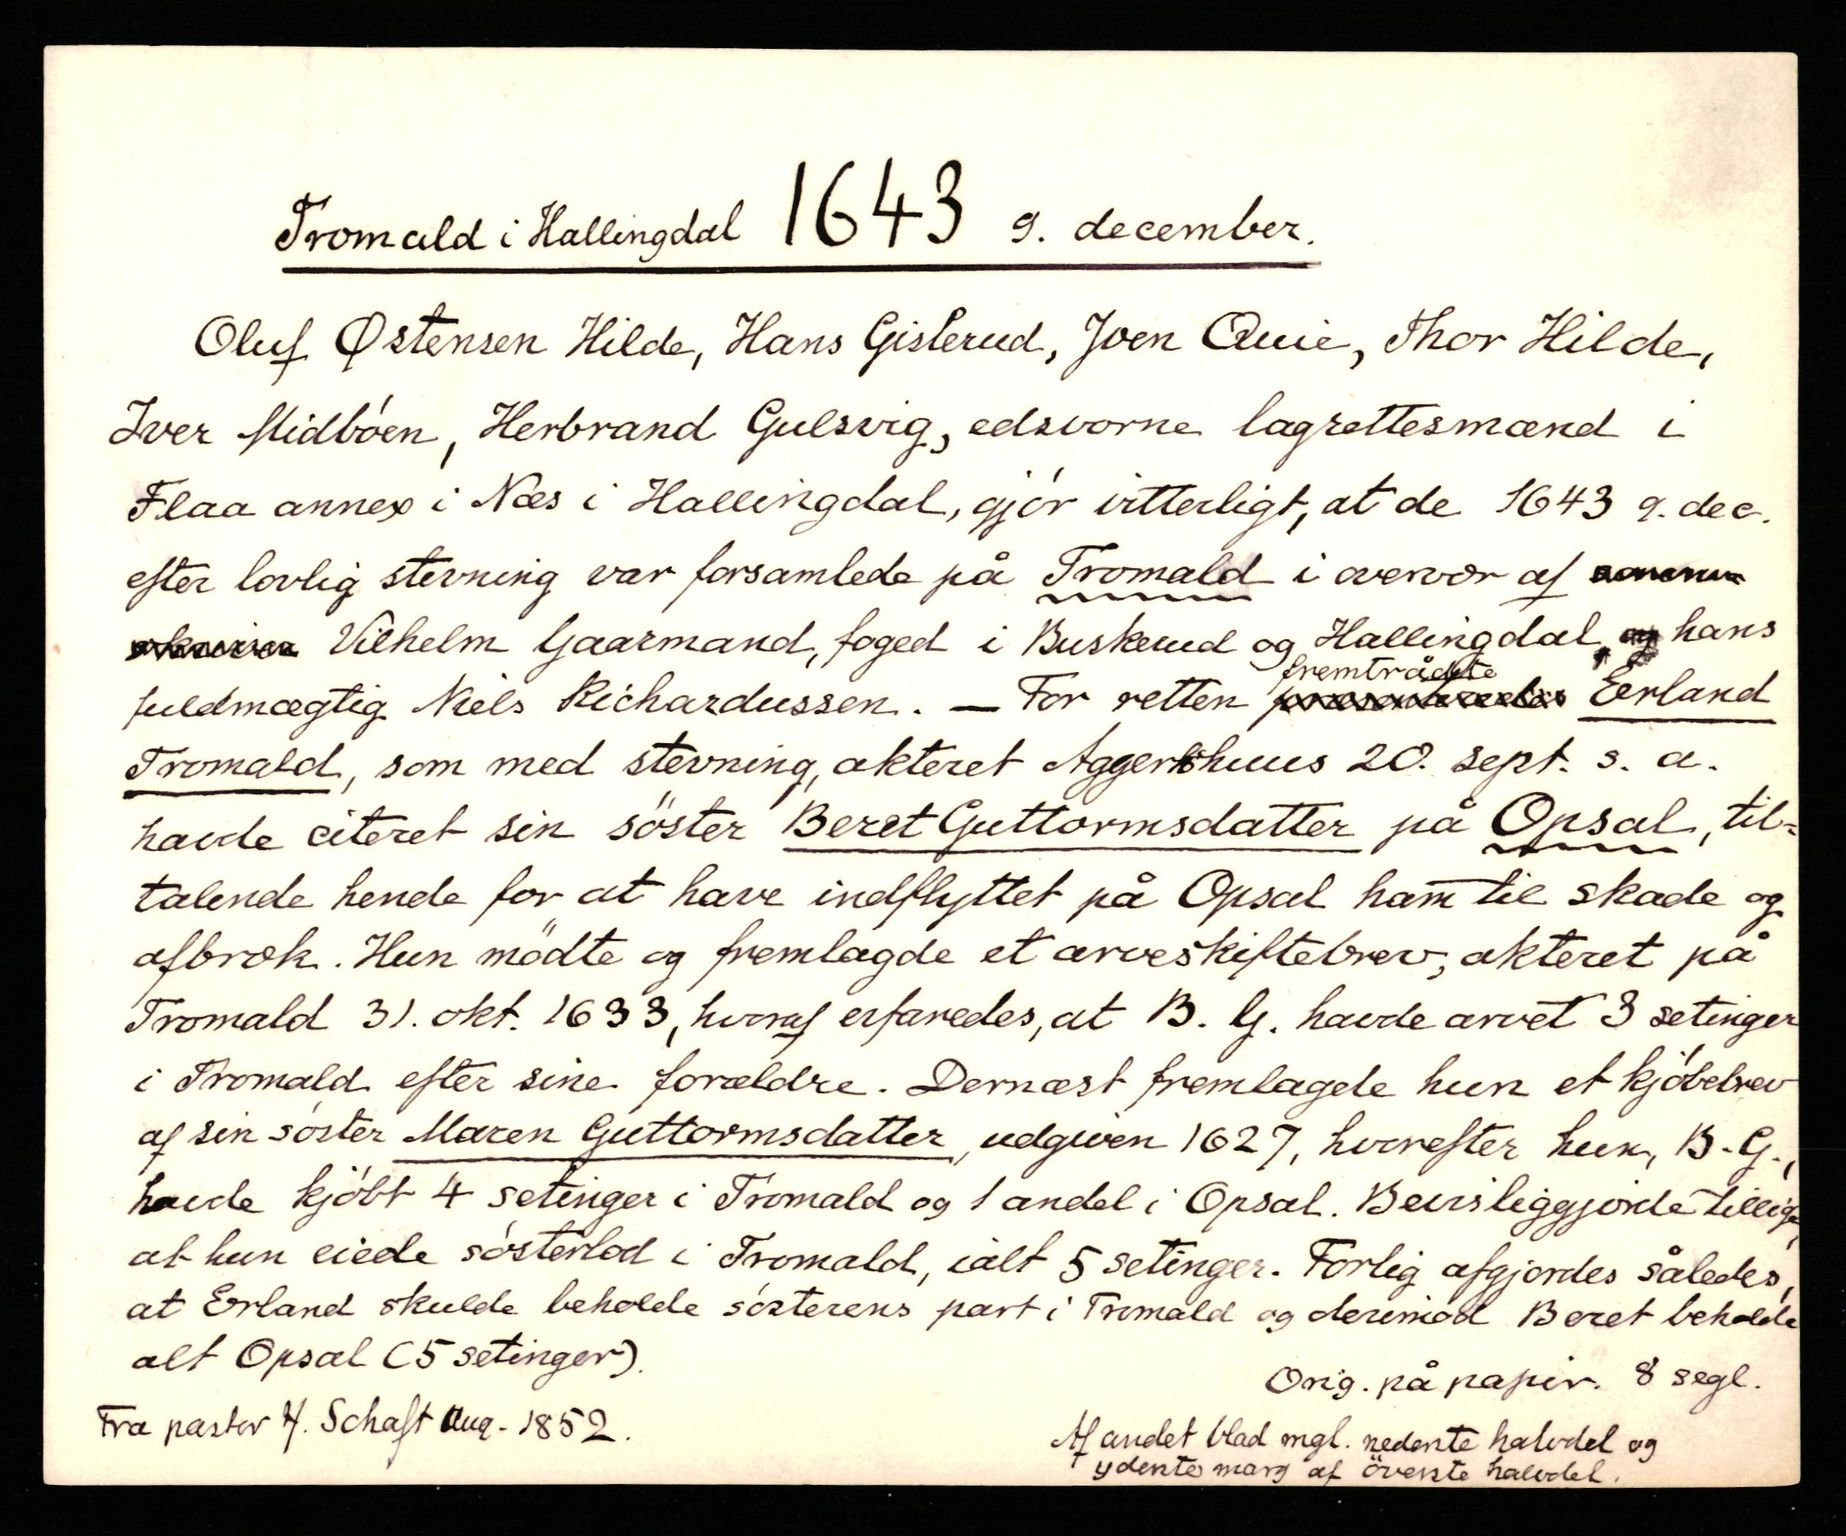 Tromald i Hallingdal 1643 9. december.
Oluf Østensen Hilde, Hans Gislerud, Joen Quie, Thor Hilde,
Iver Midböen, Herbrand Gulsvig, edsvorne lagrettesmænd i
Flaa annex i Næs i Hallingdal, gjör vitterligt, at de 1643 9. dec.
efter lovlig stevning var forsamlede på Tromald i overvær af
Vilhelm Gaarmand, foged i Buskerud og Hallingdal, hans
fremtrådte
fuldmægtig Niels Richardussen. — For retten Eerland
Tromald, som med stevning, akteret Aggershuus 20. sept. s. a.
havde citeret sin söster Beret Guttormsdatter på Opsal, til-
talende hende for at have indflyttet på Opsal ham til skade og
afbræk. Hun mödte og fremlagde et arveskiftebrev, akteret på
Tromald 31. okt. 1633, hvoraf erfaredes, at B. G. havde arvet 3 setinger
i Tromald efter sine forældre. Dernæst fremlagde hun et kjöbebrev
af sin söster Maren Guttormsdatter, udgiven 1627, hvorefter hun, B. G.,
havde kjöbt 4 setinger i Tromald og 1 andel i Opsal. Bevisliggjorde tillige,
at hun eiede sösterlod i Tromald, ialt 5 setinger. Forlig afgjordes således,
at Erland skulde beholde sösterens part i Tromald og derimod Beret beholde
alt Opsal (5 setinger).
Orig. på papir. 8 segl.
Fra pastor H. Schaft Aug. 1852.
Af andet blad mgl. nederste halvdel og
yderste marg af överste halvdel.